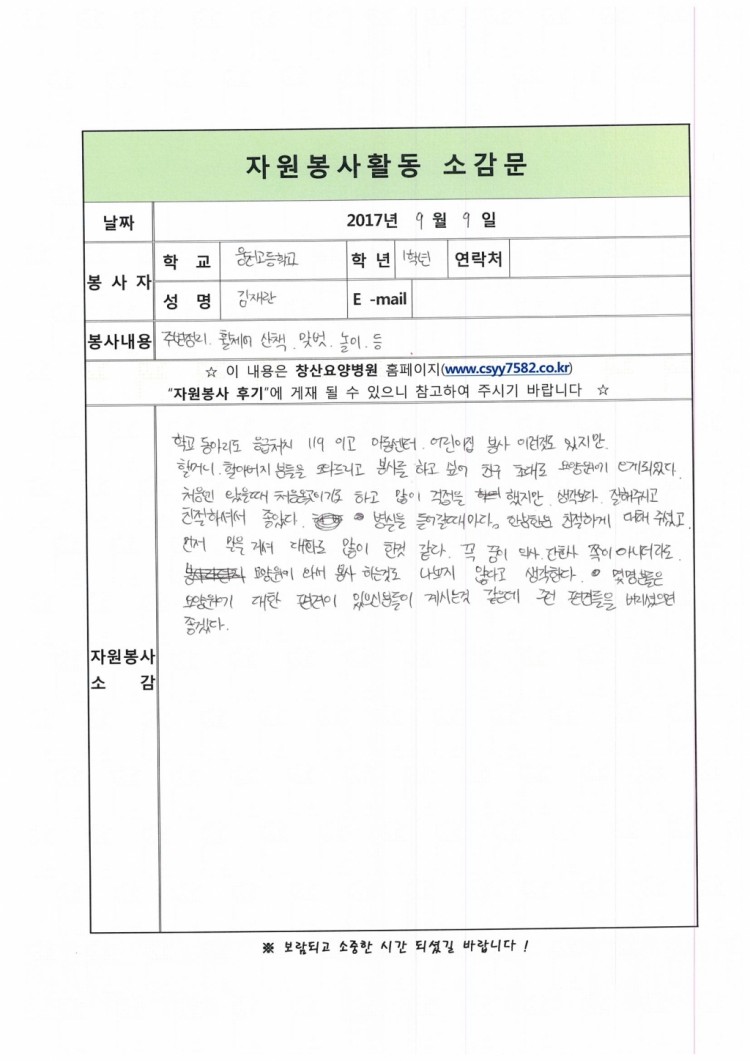 자원봉사활동 소감문
날짜 2017년 9월 9일
봉사자 학교 웅천고등학교 학년 1학년 연락처
성명 김재란 E-mail
봉사내용 주변정리. 휠체어 산책. 말벗. 놀이. 등
☆ 이 내용은 창산요양병원 홈페이지(www.csyy7582.co.kr)
"자원봉사 후기"에 게재 될 수 있으니 참고하여 주시기 바랍니다 ☆
학교 동아리도 응급처치 119 이고 아동센터. 어린이집 봉사 이런것도 있지만.
할머니. 할아버지 분들을 도와드리고 봉사를 하고 싶어 친구 초대로 요양원에 오게되었다.
처음엔 왔을때 처음온곳이기도 하고 많이 걱정을 했지만. 생각보다. 잘해주시고
친절하셔서 좋았다. 병실을 들어갈때마다, 한분한분 친절하게 대해 주셨고.
먼저 말을 걸셔 대화도 많이 한것 같다. 꼭 꿈이 의사. 간호사 쪽이 아니더라도.
요양원에 와서 봉사 하는것도 나쁘지 않다고 생각한다. 몇명분들은
요양원에 대한 편견이 있으신분들이 계시는것 같은데 그런 편견들을 버리셨으면
좋겠다.
자원봉사
소감
※ 보람되고 소중한 시간 되셨길 바랍니다 !